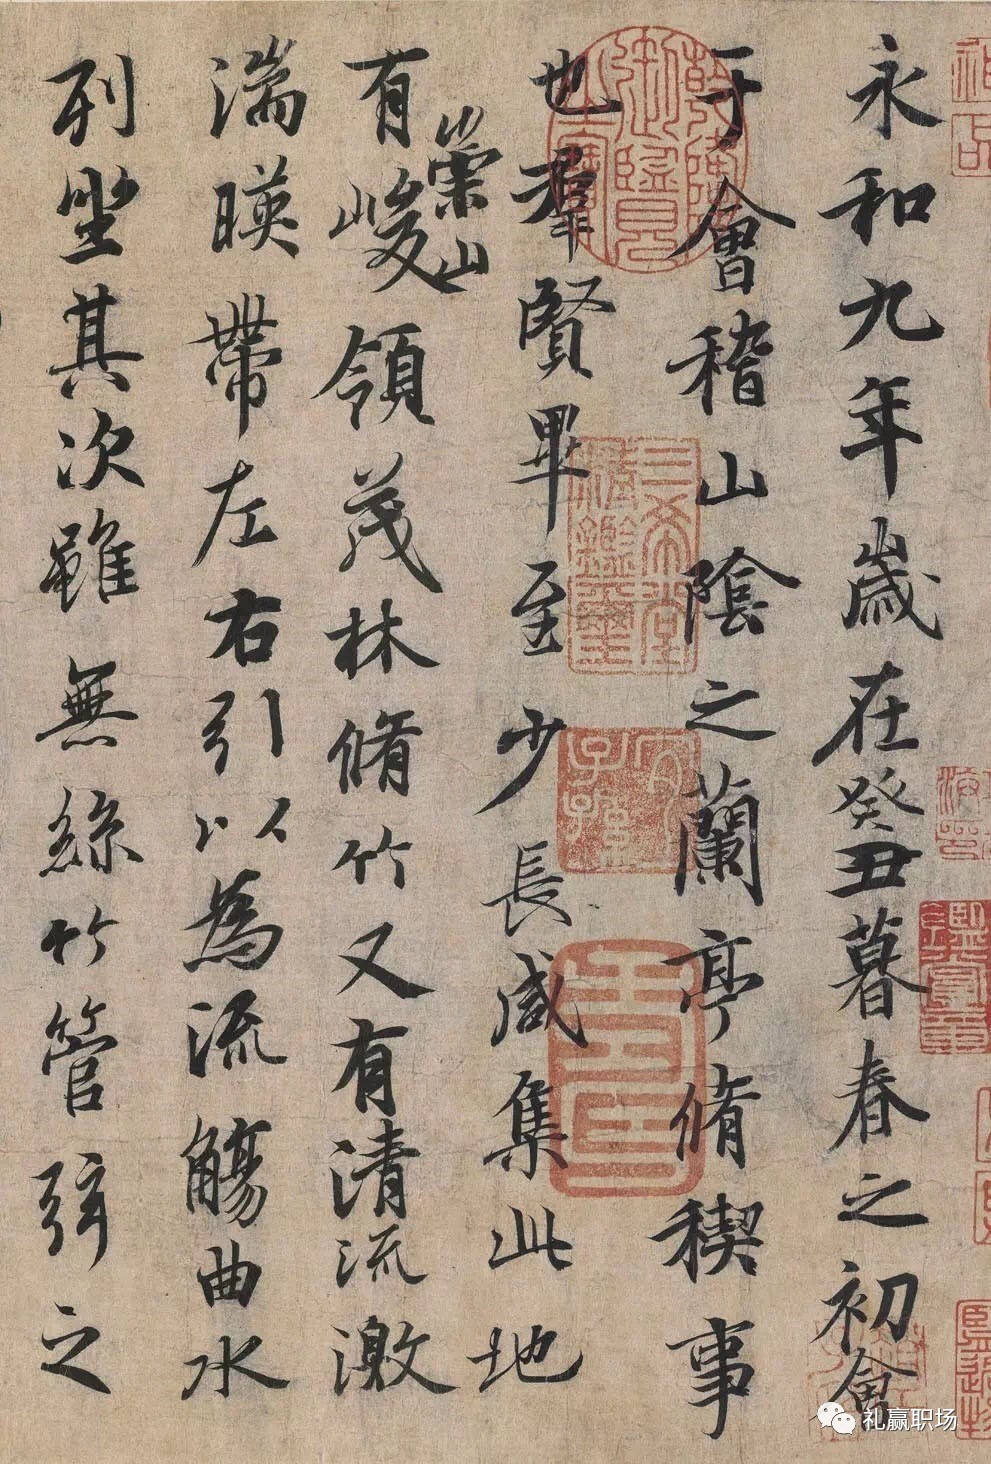 永和九年歲在癸丑暮春之初會
于會稽山陰之蘭亭脩稧事
也羣賢畢至少長咸集此地
有崇山峻領茂林脩竹又有清流激
湍暎帶左右引以為流觴曲水
列坐其次雖無絲竹管弦之
三希堂精鑑璽
宜子孫
礼赢职场